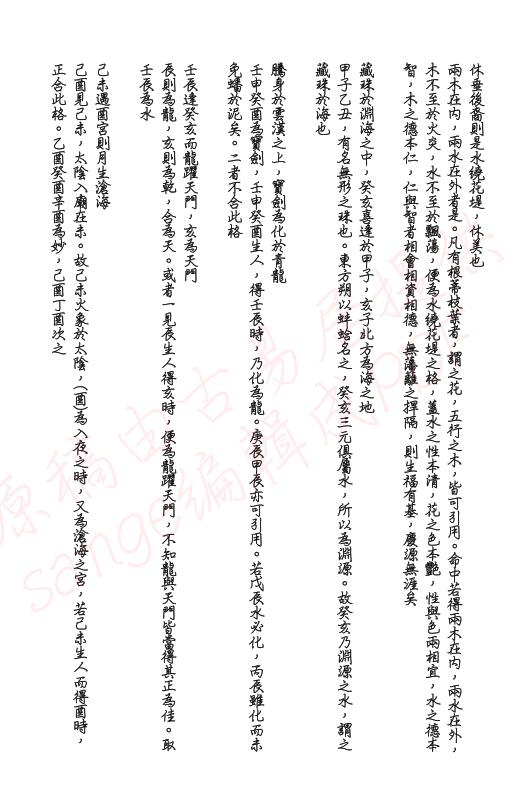 休垂後裔則是水繞花堤，休美也
兩木在內，兩水在外者是。凡有根蒂枝葉者，謂之花，五行之木，皆可引用。命中若得兩木在內，兩水在外，
木不至於火炎，水不至於飄蕩，便為水繞花堤之格，蓋水之性本清，花之色本艷，性與色兩相宜，水之德本
智，木之德本仁，仁與智者相會相資相德，無藩籬之捍隔，則生福有基，慶源無涯矣
藏珠於淵海之中，癸亥喜逢於甲子，亥子北方為海之地
甲子乙丑，有名無形之珠也。東方朔以蚌蛤名之，癸亥三元俱屬水，所以為淵源。故癸亥乃淵源之水，謂之
藏珠於海也
騰身於雲漢之上，寶劍為化於青龍
壬申癸酉為寶劍，壬申癸酉生人，得壬辰時，乃化為龍。庚辰甲辰亦可引用。若戊辰水必化，丙辰雖化而未
免蟠於泥矣。二者不合此格
壬辰逢癸亥而龍躍天門，亥為天門
辰則為龍，亥則為乾，合為天。或者一見辰生人得亥時，便為龍躍天門，不知龍與天門皆當得其正為佳。取
壬辰為水
己未遇酉宮則月生滄海
己酉見己未，太陰入廟在未。故己未火象於太陰，(酉)為入夜之時，又為滄海之宮，若己未生人而得酉時，
正合此格。乙酉癸酉辛酉為妙，己酉丁酉次之
原稿由古易居提供
sange編輯成pdf